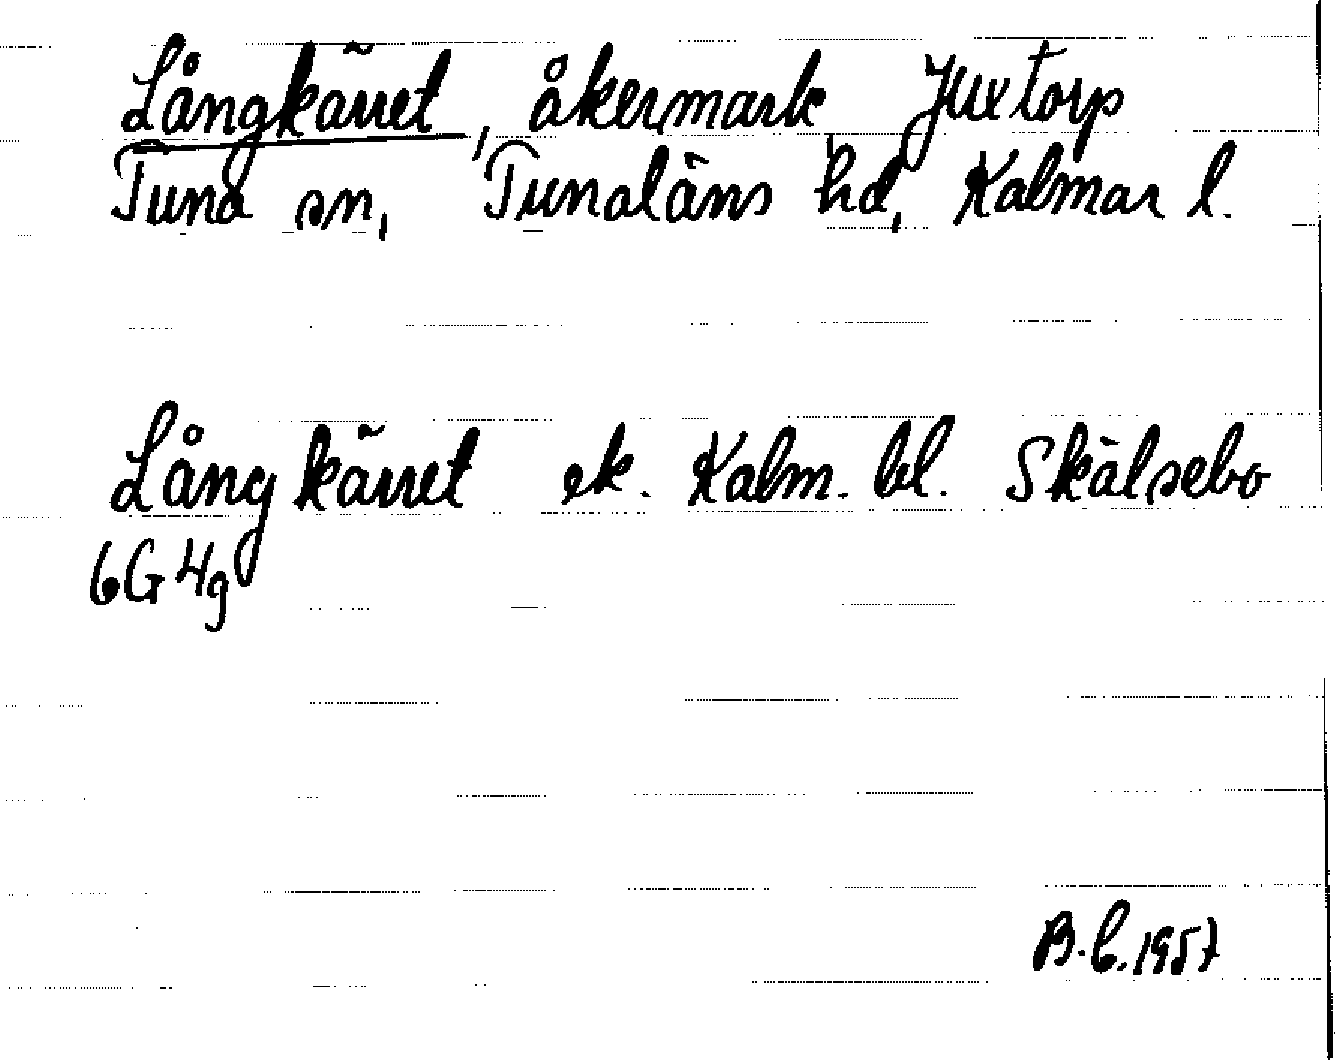 Långkärret, åkermark, Juxtorp
Tuna sn, Tunaläns hd, Kalmar l.
Långkärret ek. Kalm. bl. Skälsebo
6G 4g
B.b. 1957